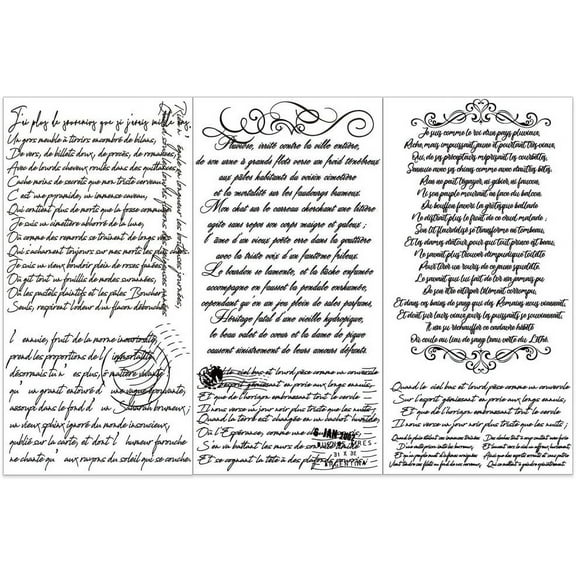 J'ai plus de souvenirs que si j'avais mille ans.
Un gros meuble à tiroirs encombré de bilans,
De vers, de billets doux, de procès, de romances,
Avec de lourds cheveux roulés dans des quittances,
Cache moins de secrets que mon triste cerveau.
C'est une pyramide, un immense caveau,
Qui contient plus de morts que la fosse commune.
Je suis un cimetière abhorré de la lune,
Où comme des remords se traînent de longs vers
Qui s'acharnent toujours sur mes morts les plus chers.
Je suis un vieux boudoir plein de roses fanées,
Où gît tout un fouillis de modes surannées,
Où les pastels plaintifs et les pâles Boucher
Seuls, respirent l'odeur d'un flacon débouché.
l ennuie, fruit de la morne incuriosité,
prend les proportions de l immortalité
désormais tu n es plus, ô matière vivante
qu un granit entouré d une vague épouvante,
assoupi dans le fond d un Sahara brumeux;
un vieux sphinx ignoré du monde insoucieux,
oublié sur la carte, et dont l humeur farouche
ne chante qu aux rayons du soleil qui se couche
Pluviôse, irrité contre la ville entière,
de son urne à grands flots verse un froid ténébreux
aux pâles habitants du voisin cimetière
et la mortalité sur les faubourgs brumeux.
Mon chat sur le carreau cherchant une litière
agite sans repos son corps maigre et galeux;
l'âme d'un vieux poète erre dans la gouttière
avec la triste voix d'un fantôme frileux.
Le bourdon se lamente, et la bûche enfumée
accompagne en fausset la pendule enrhumée,
cependant qu'en un jeu plein de sales parfums,
Héritage fatal d'une vieille hydropique,
le beau valet de cœur et la dame de pique
causent sinistrement de leurs amours défunts.
le ciel bas et lourd pèse comme un couvercle
Sur l'esprit gémissant en proie aux longs ennuis,
Et que de l'horizon embrassant tout le cercle
Il nous verse un jour noir plus triste que les nuits;
Quand la terre est changée en un cachot humide,
Où l'Espérance, comme
S'en va battant les murs de
Et se cognant la tête à des plafonds
6-JAN 2003
BUENOS AIRES
ARGENTINA
Je suis comme le roi d'un pays pluvieux,
Riche, mais impuissant, jeune et pourtant très vieux,
Qui, de ses précepteurs méprisant les courbettes,
S'ennuie avec ses chiens comme avec d'autres bêtes.
Rien ne peut l'égayer, ni gibier, ni faucon,
Ni son peuple mourant en face du balcon.
Du bouffon favori la grotesque ballade
Ne distrait plus le front de ce cruel malade;
Son lit fleurdelisé se transforme en tombeau,
Et les dames d'atour, pour qui tout prince est beau,
Ne savent plus trouver d'impudique toilette
Pour tirer un souris de ce jeune squelette.
Le savant qui lui fait de l'or n'a jamais pu
De son être extirper l'élément corrompu,
Et dans ces bains de sang qui des Romains nous viennent,
Et dont sur leurs vieux jours les puissants se souviennent,
Il n'a su réchauffer ce cadavre hébété
Où coule au lieu de sang l'eau verte du Léthé.
Quand le ciel bas et lourd pèse comme un couvercle
Sur l'esprit gémissant en proie aux longs ennuis,
Et que de l'horizon embrassant tout le cercle
Il nous verse un jour noir plus triste que les nuits;